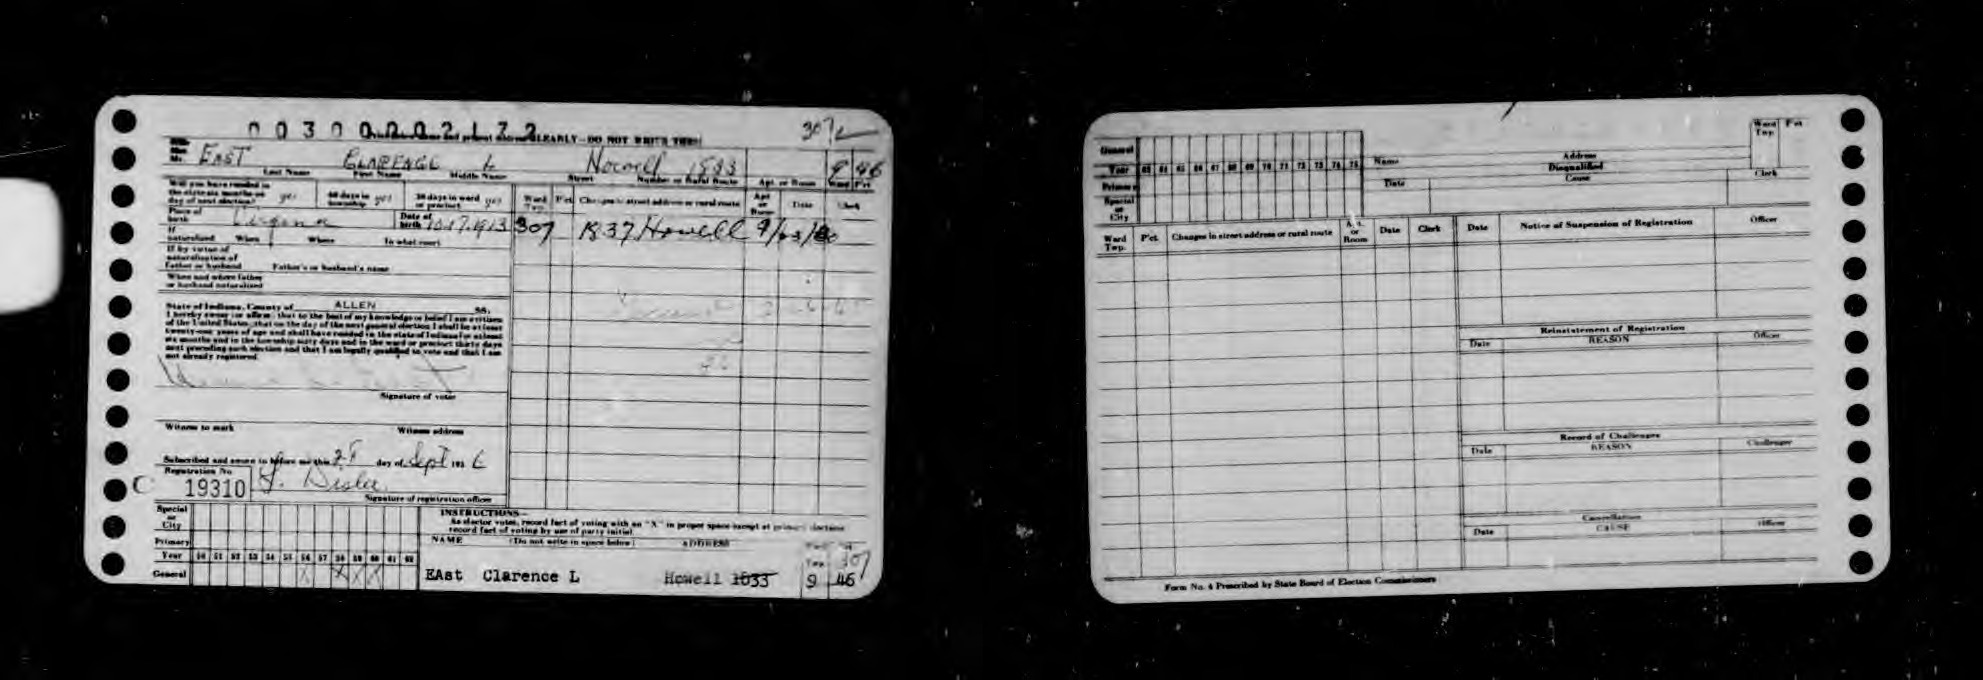 0030002172
CLEARLY—DO NOT WRITE THIS
307
EAST CLARENCE L Howell 1533 9 46
Last Name First Name Middle Name Street Number or Rural Route Apt. or Room Ward P'ct
Will you have resided in the state six months on day of next election? yes 60 days in township yes 30 days in ward or precinct yes
Ward Twp. P'ct Changes in street address or rural route Apt. or Room Date Clerk
Place of birth Date of birth 10-17-1913
307 1837 Howell 9/23/60
If naturalized When Where In what court
If by virtue of naturalization of Father or husband Father's or husband's name
When and where father or husband naturalized
State of Indiana, County of ALLEN SS.
I hereby swear (or affirm) that to the best of my knowledge or belief I am a citizen
of the United States, that on the day of the next general election I shall be at least
twenty-one years of age and shall have resided in the state of Indiana for at least
six months and in the township sixty days and in the ward or precinct thirty days
next preceding such election and that I am legally qualified to vote and that I am
not already registered.
Signature of voter
Witness to mark Witness address
Subscribed and sworn to before me this 25 day of Sept 1956
Registration No.
C 19310
Signature of registration officer
INSTRUCTIONS—
An elector votes, record fact of voting with an "X" in proper space except at primary elections
record fact of voting by use of party initial.
NAME (Do not write in space below) ADDRESS
Special or City
Primary
Year 50 51 52 53 54 55 56 57 58 59 60 61 62
General X X X X
EAst Clarence L Howell 1533 9 46 307
General
Year 65 66 67 68 69 70 71 72 73 74 75
Primary
Special or City
Name Address
Disqualified
Date Cause Clerk
Ward Twp. P'ct
Ward Twp. P'ct. Changes in street address or rural route Apt. or Room Date Clerk
Date Notice of Suspension of Registration Officer
Reinstatement of Registration
Date REASON Officer
Record of Challenges
Date REASON Challenger
Cancellation
Date CAUSE Officer
Form No. 4 Prescribed by State Board of Election Commissioners